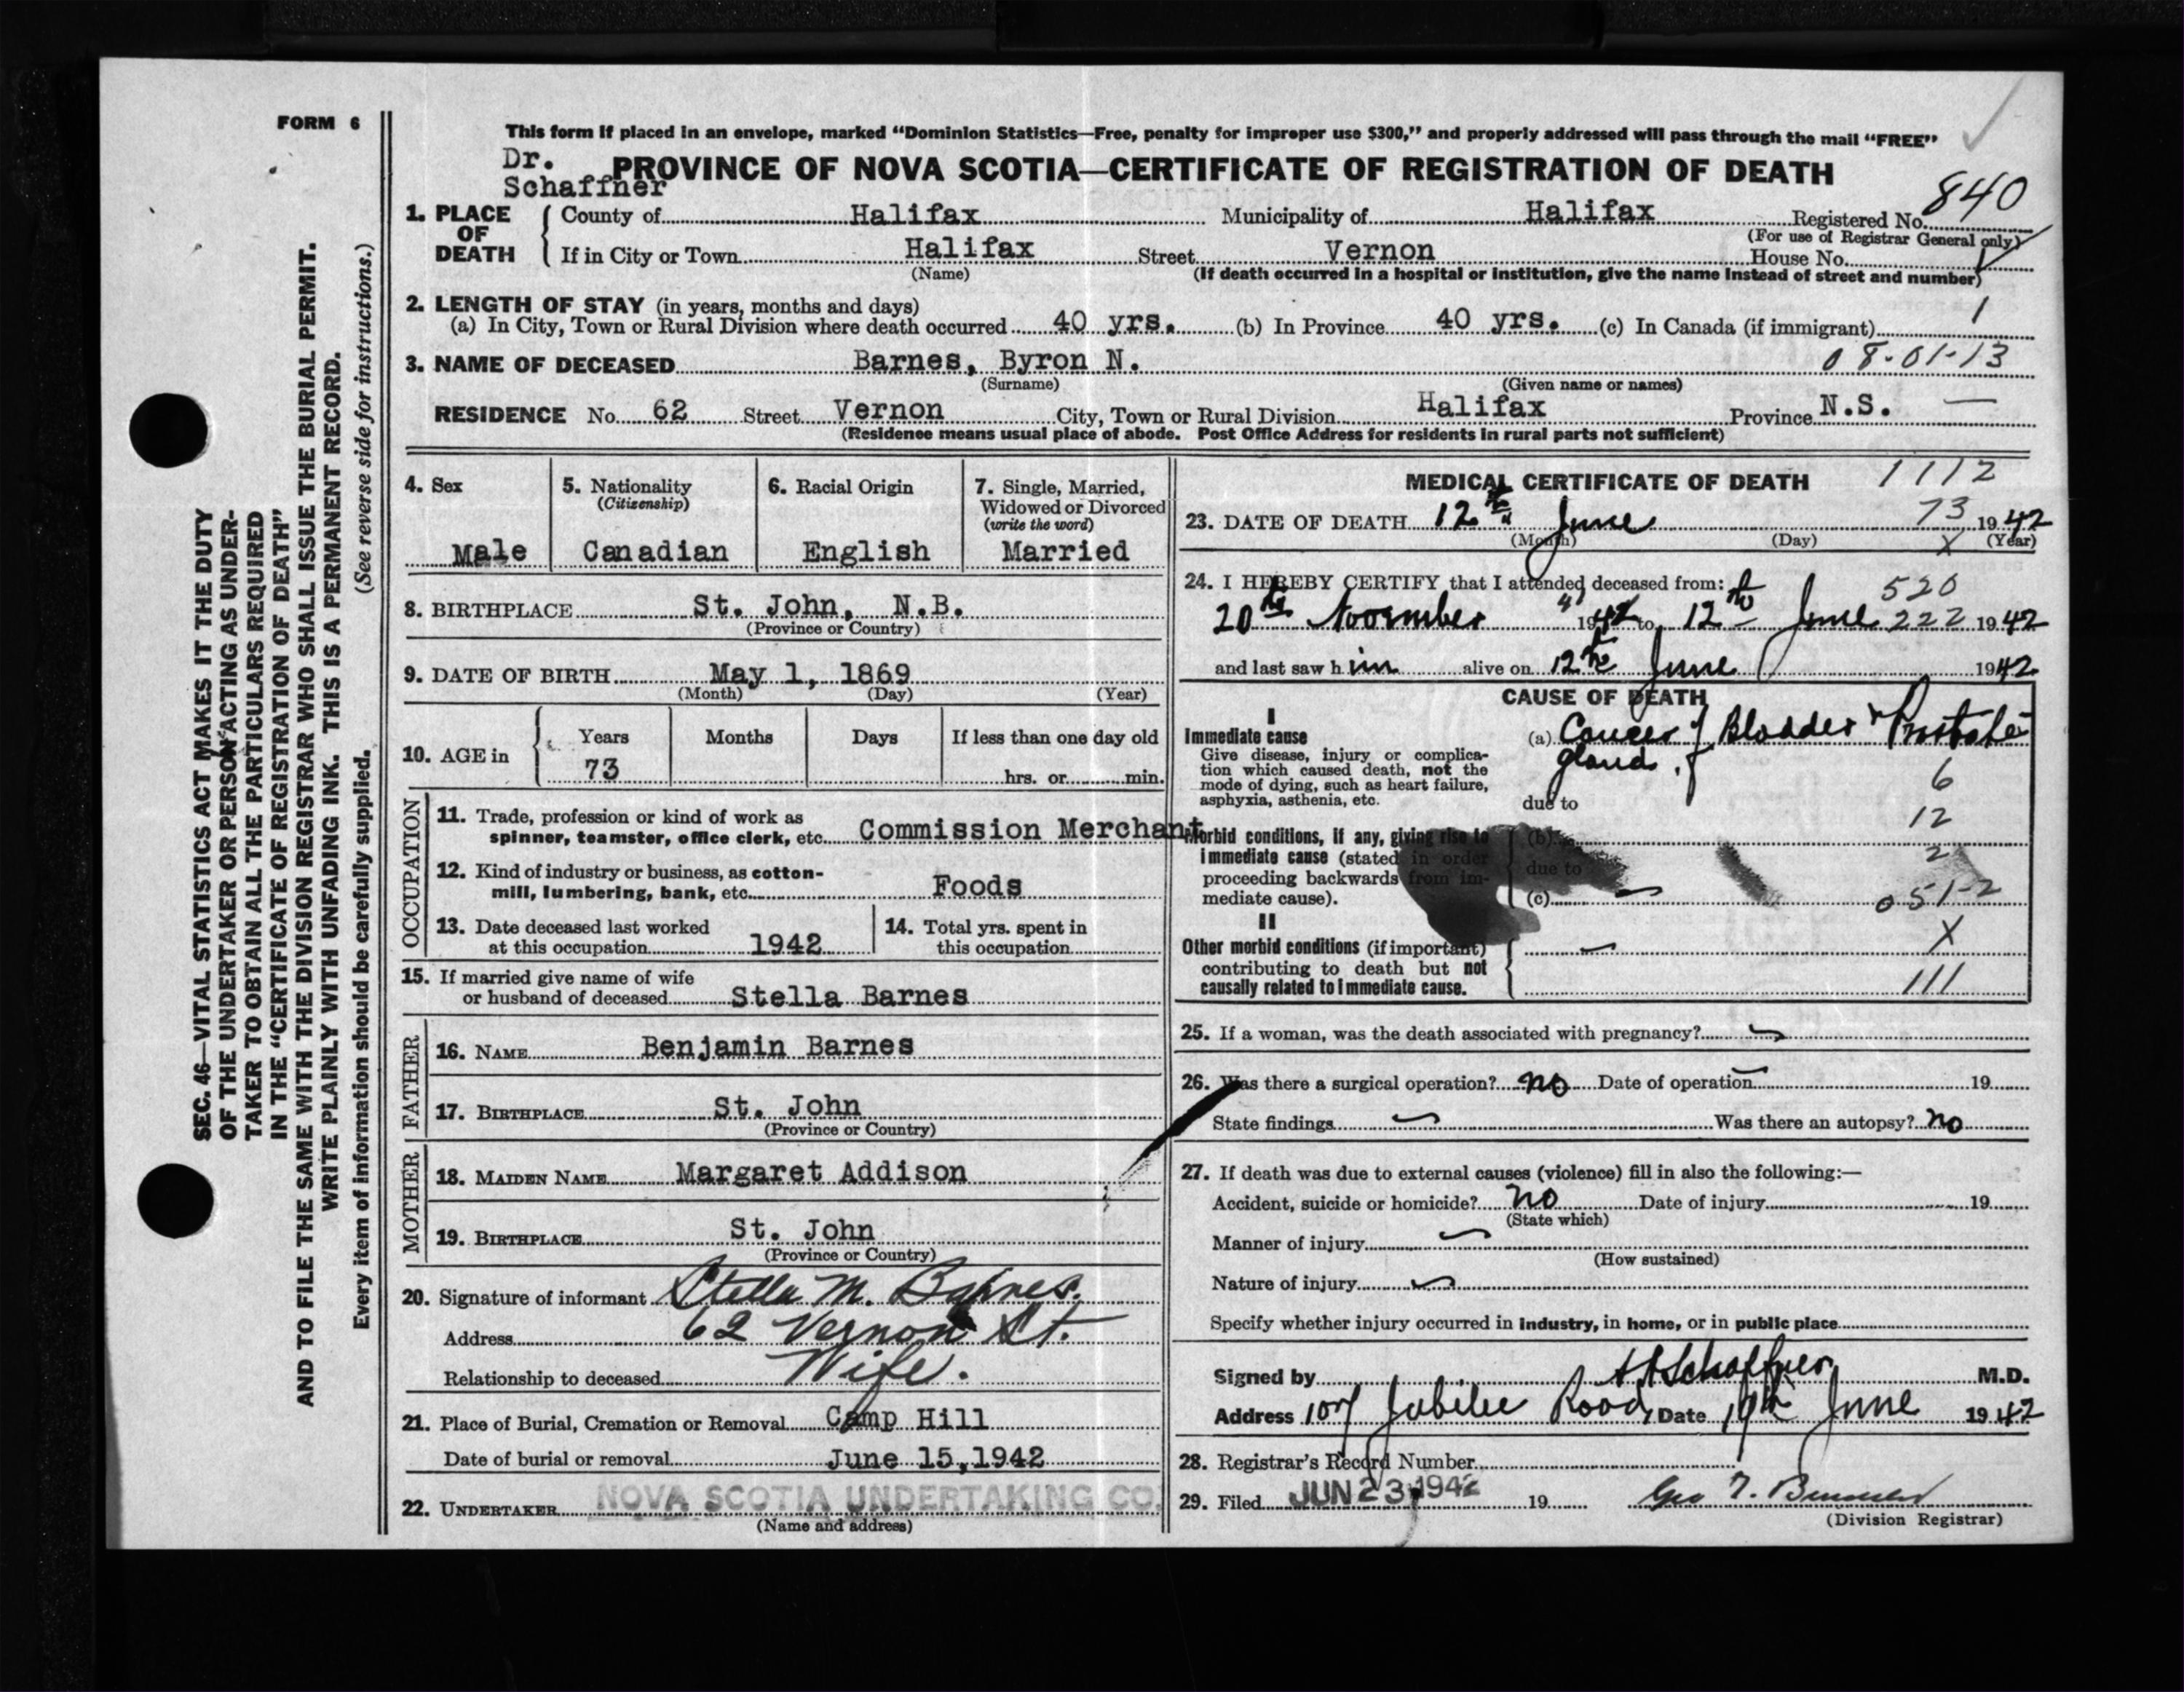 FORM 6
This form if placed in an envelope, marked “Dominion Statistics—Free, penalty for improper use $300,” and properly addressed will pass through the mail “FREE”
Dr.
Schaffner
PROVINCE OF NOVA SCOTIA—CERTIFICATE OF REGISTRATION OF DEATH
840
1. PLACE OF DEATH
County of Halifax Municipality of Halifax Registered No.
(For use of Registrar General only)
If in City or Town Halifax Street Vernon House No.
(Name) (If death occurred in a hospital or institution, give the name instead of street and number)
2. LENGTH OF STAY (in years, months and days) 1
(a) In City, Town or Rural Division where death occurred 40 yrs. (b) In Province 40 yrs. (c) In Canada (if immigrant)
3. NAME OF DECEASED Barnes, Byron N. 08-01-13
(Surname) (Given name or names)
RESIDENCE No. 62 Street Vernon City, Town or Rural Division Halifax Province N.S. —
(Residence means usual place of abode. Post Office Address for residents in rural parts not sufficient)
4. Sex
Male
5. Nationality
(Citizenship)
Canadian
6. Racial Origin
English
7. Single, Married,
Widowed or Divorced
(write the word)
Married
8. BIRTHPLACE St. John, N.B.
(Province or Country)
9. DATE OF BIRTH May 1, 1869
(Month) (Day) (Year)
10. AGE in
Years Months Days If less than one day old
73 hrs. or min.
OCCUPATION
11. Trade, profession or kind of work as
spinner, teamster, office clerk, etc. Commission Merchant
12. Kind of industry or business, as cotton-
mill, lumbering, bank, etc. Foods
13. Date deceased last worked
at this occupation 1942
14. Total yrs. spent in
this occupation
15. If married give name of wife
or husband of deceased Stella Barnes
FATHER
16. NAME Benjamin Barnes
17. BIRTHPLACE St. John
(Province or Country)
MOTHER
18. MAIDEN NAME Margaret Addison
19. BIRTHPLACE St. John
(Province or Country)
20. Signature of informant Stella M. Barnes.
Address 62 Vernon St.
Relationship to deceased Wife.
21. Place of Burial, Cremation or Removal Camp Hill
Date of burial or removal June 15, 1942
22. UNDERTAKER NOVA SCOTIA UNDERTAKING CO.
(Name and address)
MEDICAL CERTIFICATE OF DEATH 1112
23. DATE OF DEATH 12th June 73 1942
(Month) (Day) X (Year)
24. I HEREBY CERTIFY that I attended deceased from: 520
20th November 19 to 12th June 222 1942
and last saw him alive on 12th June 1942
CAUSE OF DEATH
I
Immediate cause
Give disease, injury or complica-
tion which caused death, not the
mode of dying, such as heart failure,
asphyxia, asthenia, etc.
(a) Cancer of Bladder & Prostate
gland.
6
due to
12
Morbid conditions, if any, giving rise to
immediate cause (stated in order
proceeding backwards from im-
mediate cause).
(b)
2
due to
(c) 051-2
II
Other morbid conditions (if important)
contributing to death but not
causally related to immediate cause.
X
111
25. If a woman, was the death associated with pregnancy?
26. Was there a surgical operation? no Date of operation 19
State findings Was there an autopsy? no
27. If death was due to external causes (violence) fill in also the following:—
Accident, suicide or homicide? no Date of injury 19
(State which)
Manner of injury
(How sustained)
Nature of injury
Specify whether injury occurred in industry, in home, or in public place
Signed by Schaffner M.D.
Address 107 Jubilee Road, Date 19th June 1942
28. Registrar's Record Number
29. Filed JUN 23 1942 19 Geo
(Division Registrar)
SEC. 46—VITAL STATISTICS ACT MAKES IT THE DUTY
OF THE UNDERTAKER OR PERSON ACTING AS UNDER-
TAKER TO OBTAIN ALL THE PARTICULARS REQUIRED
IN THE “CERTIFICATE OF REGISTRATION OF DEATH”
AND TO FILE THE SAME WITH THE DIVISION REGISTRAR WHO SHALL ISSUE THE BURIAL PERMIT.
WRITE PLAINLY WITH UNFADING INK. THIS IS A PERMANENT RECORD.
Every item of information should be carefully supplied. (See reverse side for instructions.)